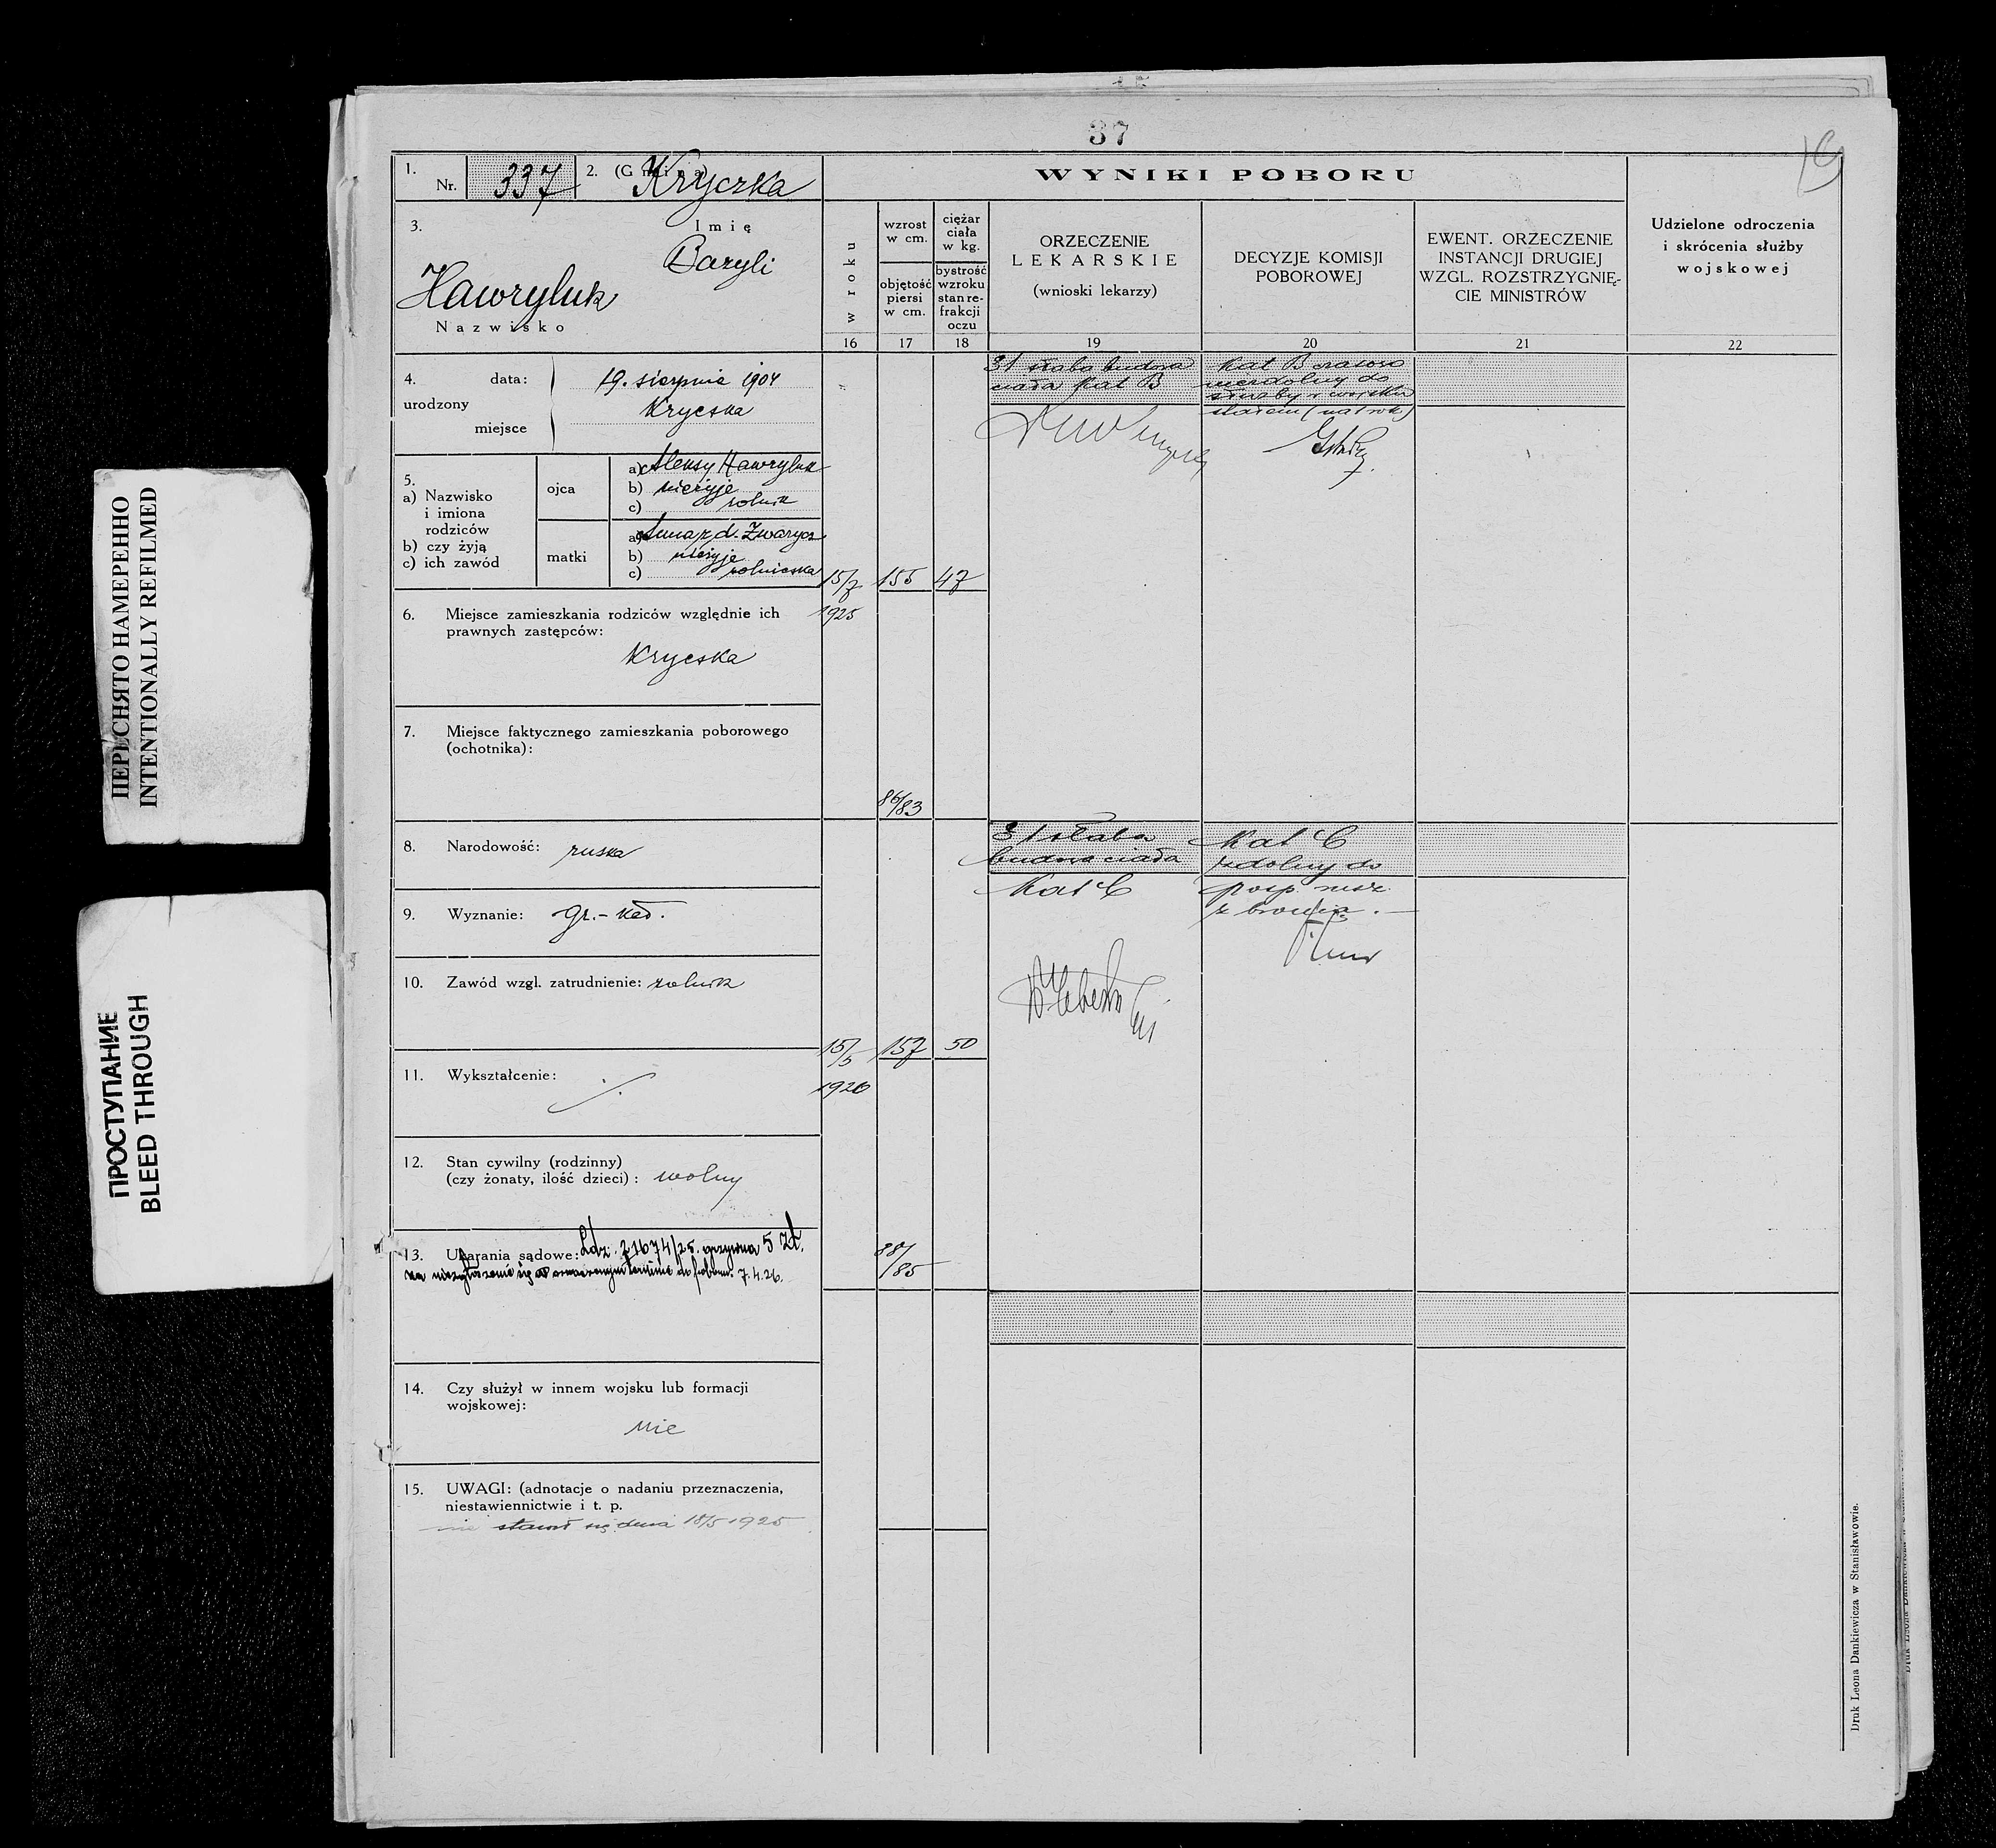 37
1. Nr. 337 2. (Gmina) Kryczka
3. Imię
Bazyli
Hawryluk
Nazwisko
4. urodzony data: 19. sierpnia 1904
miejsce Kryczka
5.
a) Nazwisko i imiona rodziców
b) czy żyją
c) ich zawód
ojca
a) Aleksy Hawryluk
b) nieżyje
c) rolnik
matki
a) Anna z d. Zwarycz
b) nieżyje
c) rolniczka
6. Miejsce zamieszkania rodziców względnie ich
prawnych zastępców:
Kryczka
7. Miejsce faktycznego zamieszkania poborowego
(ochotnika):
8. Narodowość: ruska
9. Wyznanie: gr.-kat.
10. Zawód wzgl. zatrudnienie: rolnik
11. Wykształcenie:
12. Stan cywilny (rodzinny)
(czy żonaty, ilość dzieci): wolny
13. Ukarania sądowe: Ldz. 21674/25. grzywna 5 Zł.
za niezgłoszenie się w oznaczonym terminie do poboru. 7.4.26.
14. Czy służył w innem wojsku lub formacji
wojskowej:
nie
15. UWAGI: (adnotacje o nadaniu przeznaczenia,
niestawiennictwie i t. p.
nie stawił się dnia 18/5 1925
WYNIKI POBORU
w roku
16
wzrost
w cm.
objętość
piersi
w cm.
17
ciężar
ciała
w kg.
bystrość
wzroku
stan re-
frakcji
oczu
18
ORZECZENIE
LEKARSKIE
(wnioski lekarzy)
19
DECYZJE KOMISJI
POBOROWEJ
20
EWENT. ORZECZENIE
INSTANCJI DRUGIEJ
WZGL. ROZSTRZYGNIĘ-
CIE MINISTRÓW
21
Udzielone odroczenia
i skrócenia służby
wojskowej
22
31 słaba budowa
ciała Kat B
Kat B czasowo
niezdolny do
służby w wojsku
stałem (na 1 rok)
15/7 155 47
1925
86/83
31 słaba
budowa ciała
Kat C
Kat C
zdolny do
posp. rusz.
z bronią.
15/5 157 50
1926
88/85
Druk Leona Dankiewicza w Stanisławowie.
ПЕРЕСНЯТО НАМЕРЕННО
INTENTIONALLY REFILMED
ПРОСТУПАНИЕ
BLEED THROUGH